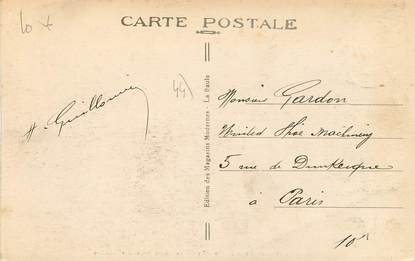 10 x
CARTE POSTALE
44)
H. Guillonneau
Edition des Magasins Modernes - La Baule
Monsieur Gardon
United Shoe Machinery
5 rue de Dunkerque
à Paris